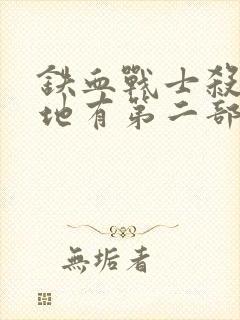 鉄血戰士殺
地有第二部
無垢者